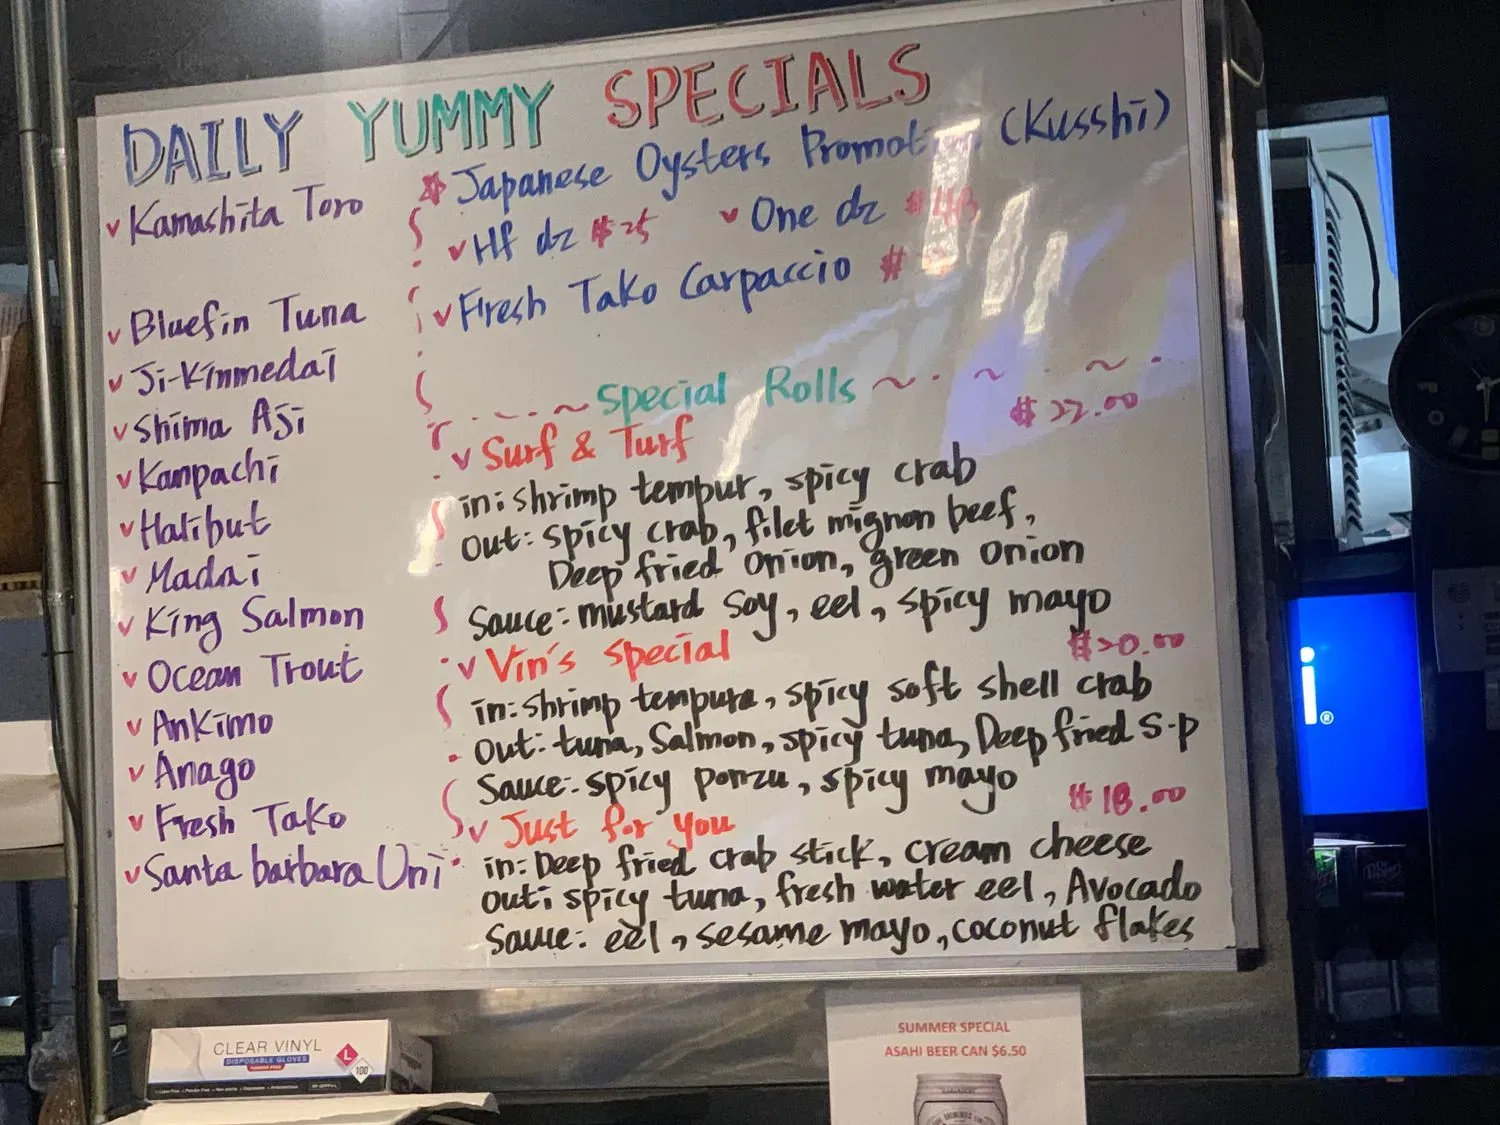 DAILY YUMMY SPECIALS
Kamashita Toro
Bluefin Tuna
Ji-Kinmedai
Shima Aji
Kanpachi
Halibut
Madai
King Salmon
Ocean Trout
Ankimo
Anago
Fresh Tako
Santa barbara Uni
Japanese Oysters Promotion (Kusshi)
Hf dz $25 One dz $48
Fresh Tako Carpaccio $
Special Rolls
Surf & Turf $22.00
in: shrimp tempur, spicy crab
Out: spicy crab, filet mignon beef,
Deep fried onion, green onion
Sauce: mustard soy, eel, spicy mayo
Vin's special $20.00
in: shrimp tempura, spicy soft shell crab
Out: tuna, Salmon, spicy tuna, Deep fried S.P
Sauce: spicy ponzu, spicy mayo
Just for you $18.00
in: Deep fried crab stick, cream cheese
Out: spicy tuna, fresh water eel, Avocado
Sauce: eel, sesame mayo, coconut flakes
CLEAR VINYL
DISPOSABLE GLOVES
L
100
SUMMER SPECIAL
ASAHI BEER CAN $6.50
i®